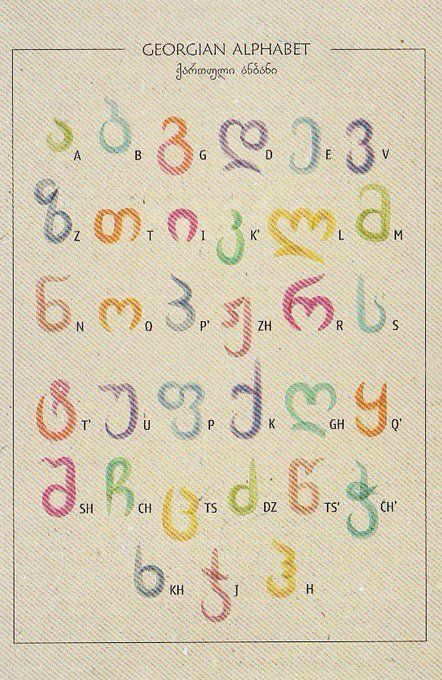 GEORGIAN ALPHABET
ქართული ანბანი
ა A ბ B გ G დ D ე E ვ V
ზ Z თ T ი I კ K' ლ L მ M
ნ N ო O პ P' ჟ ZH რ R ს S
ტ T' უ U ფ P ქ K ღ GH ყ Q'
შ SH ჩ CH ც TS ძ DZ წ TS' ჭ CH'
ხ KH ჯ J ჰ H